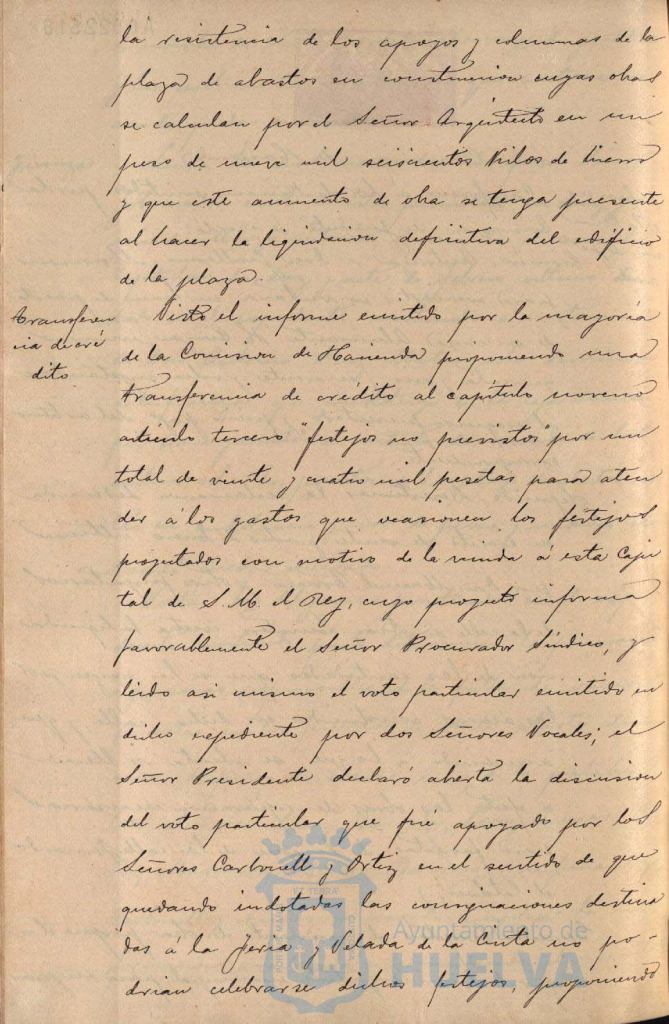 la resistencia de los apoyos y columnas de la
plaza de abastos en construccion cuyas obras
se calculan por el Señor Arquitecto en un
peso de nueve mil seiscientos Kilos de hierro
y que este aumento de obra se tenga presente
al hacer la liquidacion definitiva del edificio
de la plaza.
Transferen
cia de cré
dito
Visto el informe emitido por la mayoría
de la Comision de Hacienda proponiendo una
transferencia de crédito al capítulo noveno
artículo tercero "festejos no previstos" por un
total de veinte y cuatro mil pesetas para aten
der á los gastos que ocasionen los festejos
proyectados con motivo de la venida á esta Capi
tal de S. M. el Rey, cuyo proyecto informa
favorablemente el Señor Procurador Síndico, y
leido asi mismo el voto particular emitido en
dicho expediente por dos Señores Vocales; el
Señor Presidente declaró abierta la discusion
del voto particular que fué apoyado por los
Señores Carbonell y Ortiz en el sentido de que
quedando indotadas las consignaciones destina
das á la Feria y Velada de la Cinta no po-
drian celebrarse dichos festejos, proponiendo
Ayuntamiento de
HUELVA